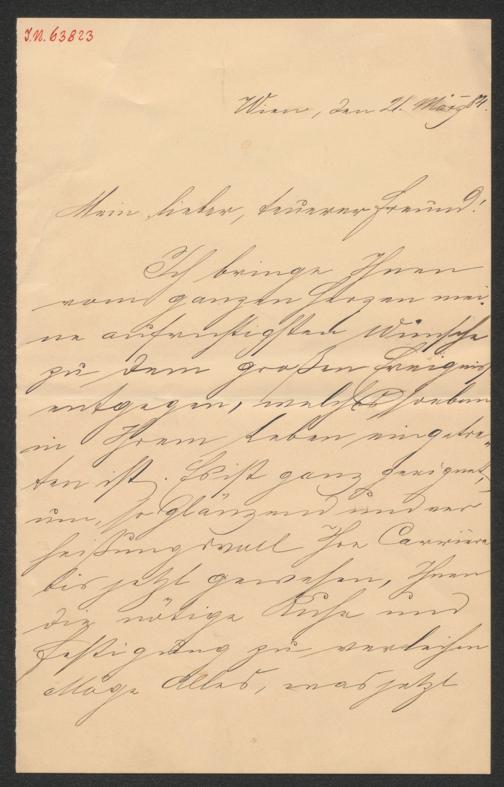 I.N. 63823
Wien, den 21. März 84.
Mein lieber, teuerer Freund!
Ich bringe Ihnen
vom ganzen Herzen mei-
ne aufrichtigsten Wünsche
zu dem großen Ereigniß
entgegen, welches soeben
in Ihrem Leben eingetre-
ten ist. Es ist ganz geeignet,
um, so glänzend und ver
heißungsvoll Ihre Carrière
bis jetzt gewesen, Ihnen
die nötige Ruhe und
Festigung zu verleihen
Möge Alles, was jetzt